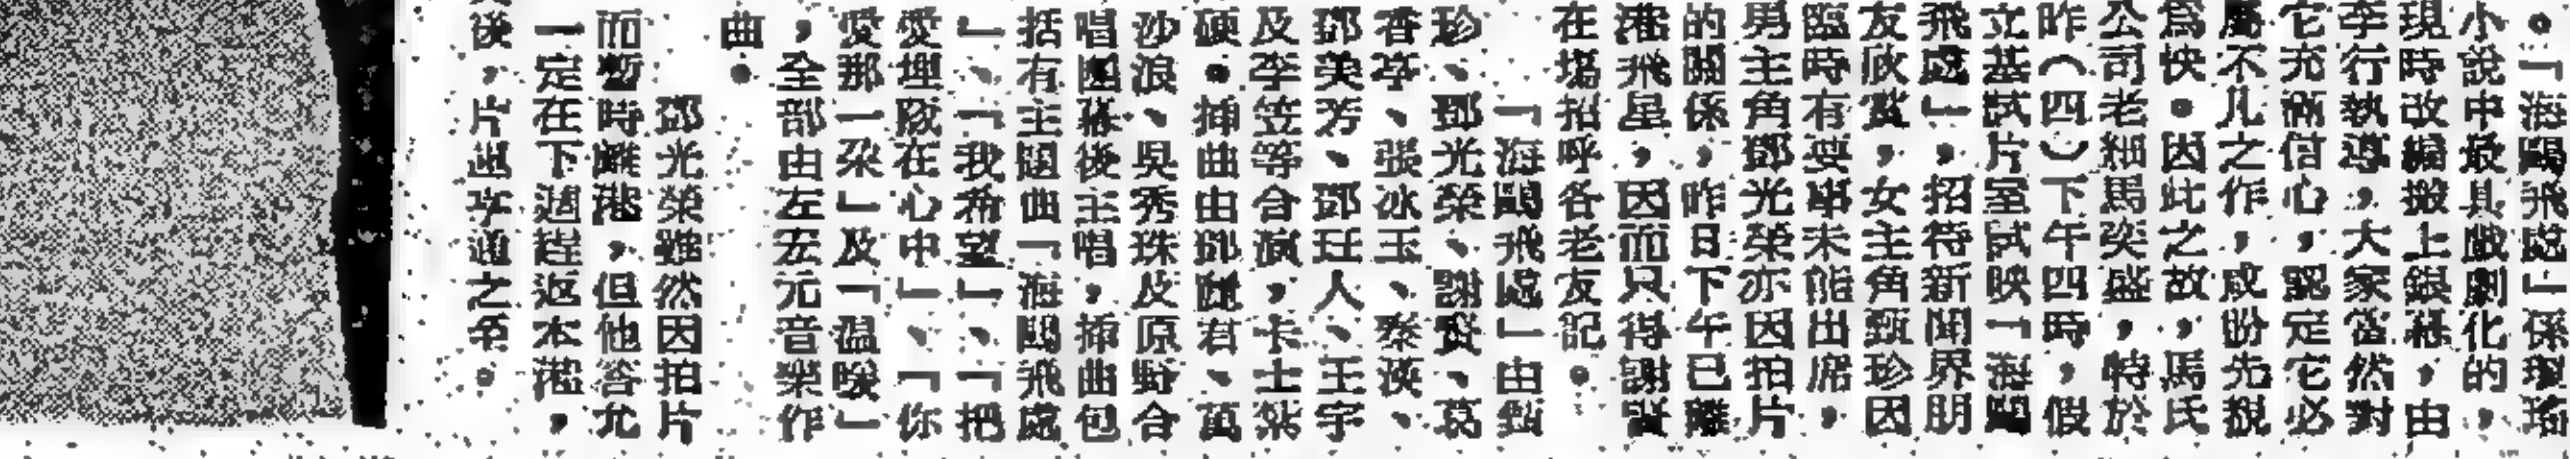 。「海鷗飛處」係瓊瑤
小說中最具戲劇化的，
現時改編搬上銀幕，由
李行執導，大家當然對
它充滿信心，認定它必
屬不凡之作，咸盼先覩
為快。因此之故，馬氏
公司老細馬奕盛，特於
昨（四）下午四時，假
立基試片室試映「海鷗
飛處」，招待新聞界朋
友欣賞，女主角甄珍因
臨時有要事未能出席，
男主角鄧光榮亦因拍片
的關係，昨日下午已離
港飛星，因而只得謝賢
在場招呼各老友記。
「海鷗飛處」由甄
珍、鄧光榮、謝賢、葛
香亭、張冰玉、秦漢、
鄧美芳、鄧玨人、王宇
及李笠等合演，卡士紮
硬。插曲由鄧麗君、萬
沙浪、吳秀珠及原野合
唱團幕後主唱，插曲包
括有主題曲「海鷗飛處
」、「我希望」、「把
愛埋隊在心中」、「你
愛那一朶」及「温暖」
，全部由左宏元音樂作
曲。
鄧光榮雖然因拍片
而暫時離港，但他答允
一定在下週趕返本港，
後，片